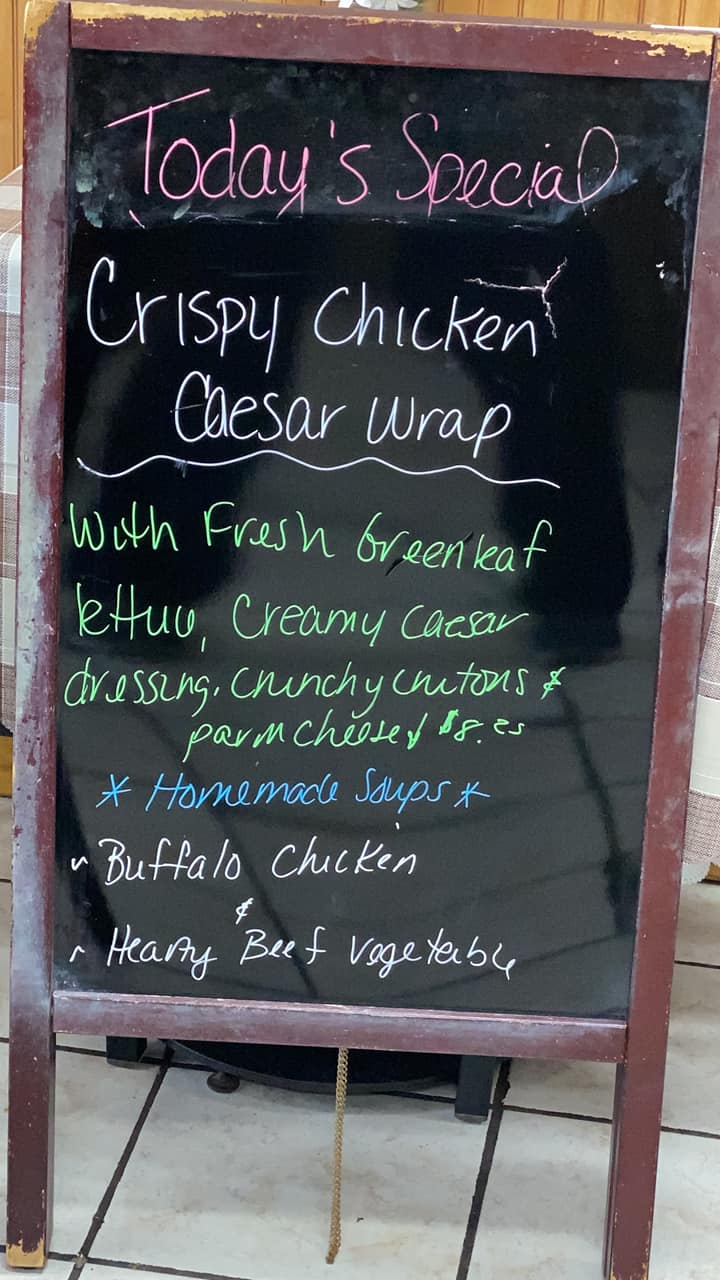 Today's Special
Crispy Chicken
Caesar Wrap
With Fresh Greenleaf
lettuce, Creamy Caesar
dressing, crunchy crutons &
parm cheese! $8.25
* Homemade Soups *
~ Buffalo Chicken
&
~ Hearty Beef Vegetable